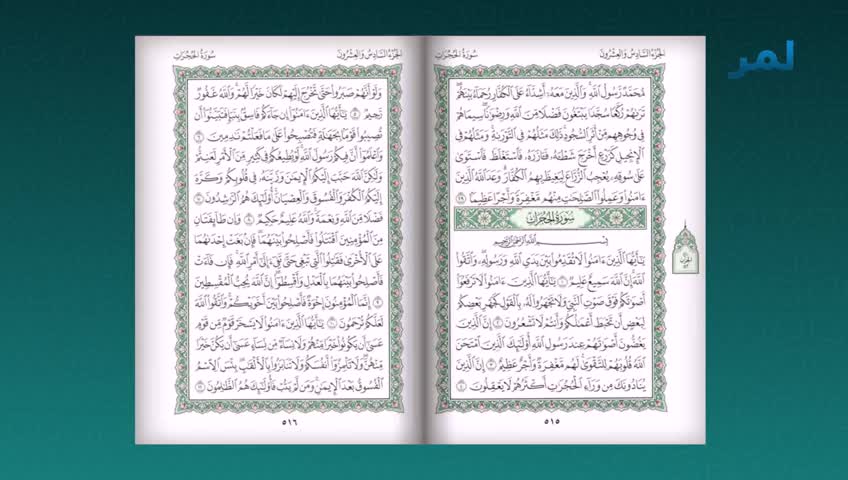 لمر
الجُزْءُ السَّادِسُ وَالعِشْرُونَ
سُورَةُ الحُجُرَاتِ
مُّحَمَّدٌ رَّسُولُ ٱللَّهِ ۚ وَٱلَّذِينَ مَعَهُۥٓ أَشِدَّآءُ عَلَى ٱلْكُفَّارِ رُحَمَآءُ بَيْنَهُمْ ۖ
تَرَىٰهُمْ رُكَّعًا سُجَّدًا يَبْتَغُونَ فَضْلًا مِّنَ ٱللَّهِ وَرِضْوَٰنًا ۖ سِيمَاهُمْ
فِى وُجُوهِهِم مِّنْ أَثَرِ ٱلسُّجُودِ ۚ ذَٰلِكَ مَثَلُهُمْ فِى ٱلتَّوْرَىٰةِ ۚ وَمَثَلُهُمْ فِى
ٱلْإِنجِيلِ كَزَرْعٍ أَخْرَجَ شَطْـَٔهُۥ فَـَٔازَرَهُۥ فَٱسْتَغْلَظَ فَٱسْتَوَىٰ
عَلَىٰ سُوقِهِۦ يُعْجِبُ ٱلزُّرَّاعَ لِيَغِيظَ بِهِمُ ٱلْكُفَّارَ ۗ وَعَدَ ٱللَّهُ ٱلَّذِينَ
ءَامَنُوا۟ وَعَمِلُوا۟ ٱلصَّٰلِحَٰتِ مِنْهُم مَّغْفِرَةً وَأَجْرًا عَظِيمًۢا ٢٩
سُورَةُ الحُجُرَاتِ
بِسْمِ ٱللَّهِ ٱلرَّحْمَٰنِ ٱلرَّحِيمِ
يَٰٓأَيُّهَا ٱلَّذِينَ ءَامَنُوا۟ لَا تُقَدِّمُوا۟ بَيْنَ يَدَىِ ٱللَّهِ وَرَسُولِهِۦ ۖ وَٱتَّقُوا۟
ٱللَّهَ ۚ إِنَّ ٱللَّهَ سَمِيعٌ عَلِيمٌ ١ يَٰٓأَيُّهَا ٱلَّذِينَ ءَامَنُوا۟ لَا تَرْفَعُوٓا۟
أَصْوَٰتَكُمْ فَوْقَ صَوْتِ ٱلنَّبِىِّ وَلَا تَجْهَرُوا۟ لَهُۥ بِٱلْقَوْلِ كَجَهْرِ بَعْضِكُمْ
لِبَعْضٍ أَن تَحْبَطَ أَعْمَٰلُكُمْ وَأَنتُمْ لَا تَشْعُرُونَ ٢ إِنَّ ٱلَّذِينَ
يَغُضُّونَ أَصْوَٰتَهُمْ عِندَ رَسُولِ ٱللَّهِ أُو۟لَٰٓئِكَ ٱلَّذِينَ ٱمْتَحَنَ
ٱللَّهُ قُلُوبَهُمْ لِلتَّقْوَىٰ ۚ لَهُم مَّغْفِرَةٌ وَأَجْرٌ عَظِيمٌ ٣ إِنَّ ٱلَّذِينَ
يُنَادُونَكَ مِن وَرَآءِ ٱلْحُجُرَٰتِ أَكْثَرُهُمْ لَا يَعْقِلُونَ ٤
٥١٥
الجُزْءُ السَّادِسُ وَالعِشْرُونَ
سُورَةُ الحُجُرَاتِ
وَلَوْ أَنَّهُمْ صَبَرُوا۟ حَتَّىٰ تَخْرُجَ إِلَيْهِمْ لَكَانَ خَيْرًا لَّهُمْ ۚ وَٱللَّهُ غَفُورٌ
رَّحِيمٌ ٥ يَٰٓأَيُّهَا ٱلَّذِينَ ءَامَنُوٓا۟ إِن جَآءَكُمْ فَاسِقٌۢ بِنَبَإٍ فَتَبَيَّنُوٓا۟ أَن
تُصِيبُوا۟ قَوْمًۢا بِجَهَٰلَةٍ فَتُصْبِحُوا۟ عَلَىٰ مَا فَعَلْتُمْ نَٰدِمِينَ ٦
وَٱعْلَمُوٓا۟ أَنَّ فِيكُمْ رَسُولَ ٱللَّهِ ۚ لَوْ يُطِيعُكُمْ فِى كَثِيرٍ مِّنَ ٱلْأَمْرِ لَعَنِتُّمْ
وَلَٰكِنَّ ٱللَّهَ حَبَّبَ إِلَيْكُمُ ٱلْإِيمَٰنَ وَزَيَّنَهُۥ فِى قُلُوبِكُمْ وَكَرَّهَ
إِلَيْكُمُ ٱلْكُفْرَ وَٱلْفُسُوقَ وَٱلْعِصْيَانَ ۚ أُو۟لَٰٓئِكَ هُمُ ٱلرَّٰشِدُونَ ٧
فَضْلًا مِّنَ ٱللَّهِ وَنِعْمَةً ۚ وَٱللَّهُ عَلِيمٌ حَكِيمٌ ٨ وَإِن طَآئِفَتَانِ
مِنَ ٱلْمُؤْمِنِينَ ٱقْتَتَلُوا۟ فَأَصْلِحُوا۟ بَيْنَهُمَا ۖ فَإِنۢ بَغَتْ إِحْدَىٰهُمَا
عَلَى ٱلْأُخْرَىٰ فَقَٰتِلُوا۟ ٱلَّتِى تَبْغِى حَتَّىٰ تَفِىٓءَ إِلَىٰٓ أَمْرِ ٱللَّهِ ۚ فَإِن فَآءَتْ
فَأَصْلِحُوا۟ بَيْنَهُمَا بِٱلْعَدْلِ وَأَقْسِطُوٓا۟ ۖ إِنَّ ٱللَّهَ يُحِبُّ ٱلْمُقْسِطِينَ
٩ إِنَّمَا ٱلْمُؤْمِنُونَ إِخْوَةٌ فَأَصْلِحُوا۟ بَيْنَ أَخَوَيْكُمْ ۚ وَٱتَّقُوا۟ ٱللَّهَ
لَعَلَّكُمْ تُرْحَمُونَ ١٠ يَٰٓأَيُّهَا ٱلَّذِينَ ءَامَنُوا۟ لَا يَسْخَرْ قَوْمٌ مِّن قَوْمٍ
عَسَىٰٓ أَن يَكُونُوا۟ خَيْرًا مِّنْهُمْ وَلَا نِسَآءٌ مِّن نِّسَآءٍ عَسَىٰٓ أَن يَكُنَّ خَيْرًا
مِّنْهُنَّ ۖ وَلَا تَلْمِزُوٓا۟ أَنفُسَكُمْ وَلَا تَنَابَزُوا۟ بِٱلْأَلْقَٰبِ ۖ بِئْسَ ٱلِٱسْمُ
ٱلْفُسُوقُ بَعْدَ ٱلْإِيمَٰنِ ۚ وَمَن لَّمْ يَتُبْ فَأُو۟لَٰٓئِكَ هُمُ ٱلظَّٰلِمُونَ ١١
٥١٦